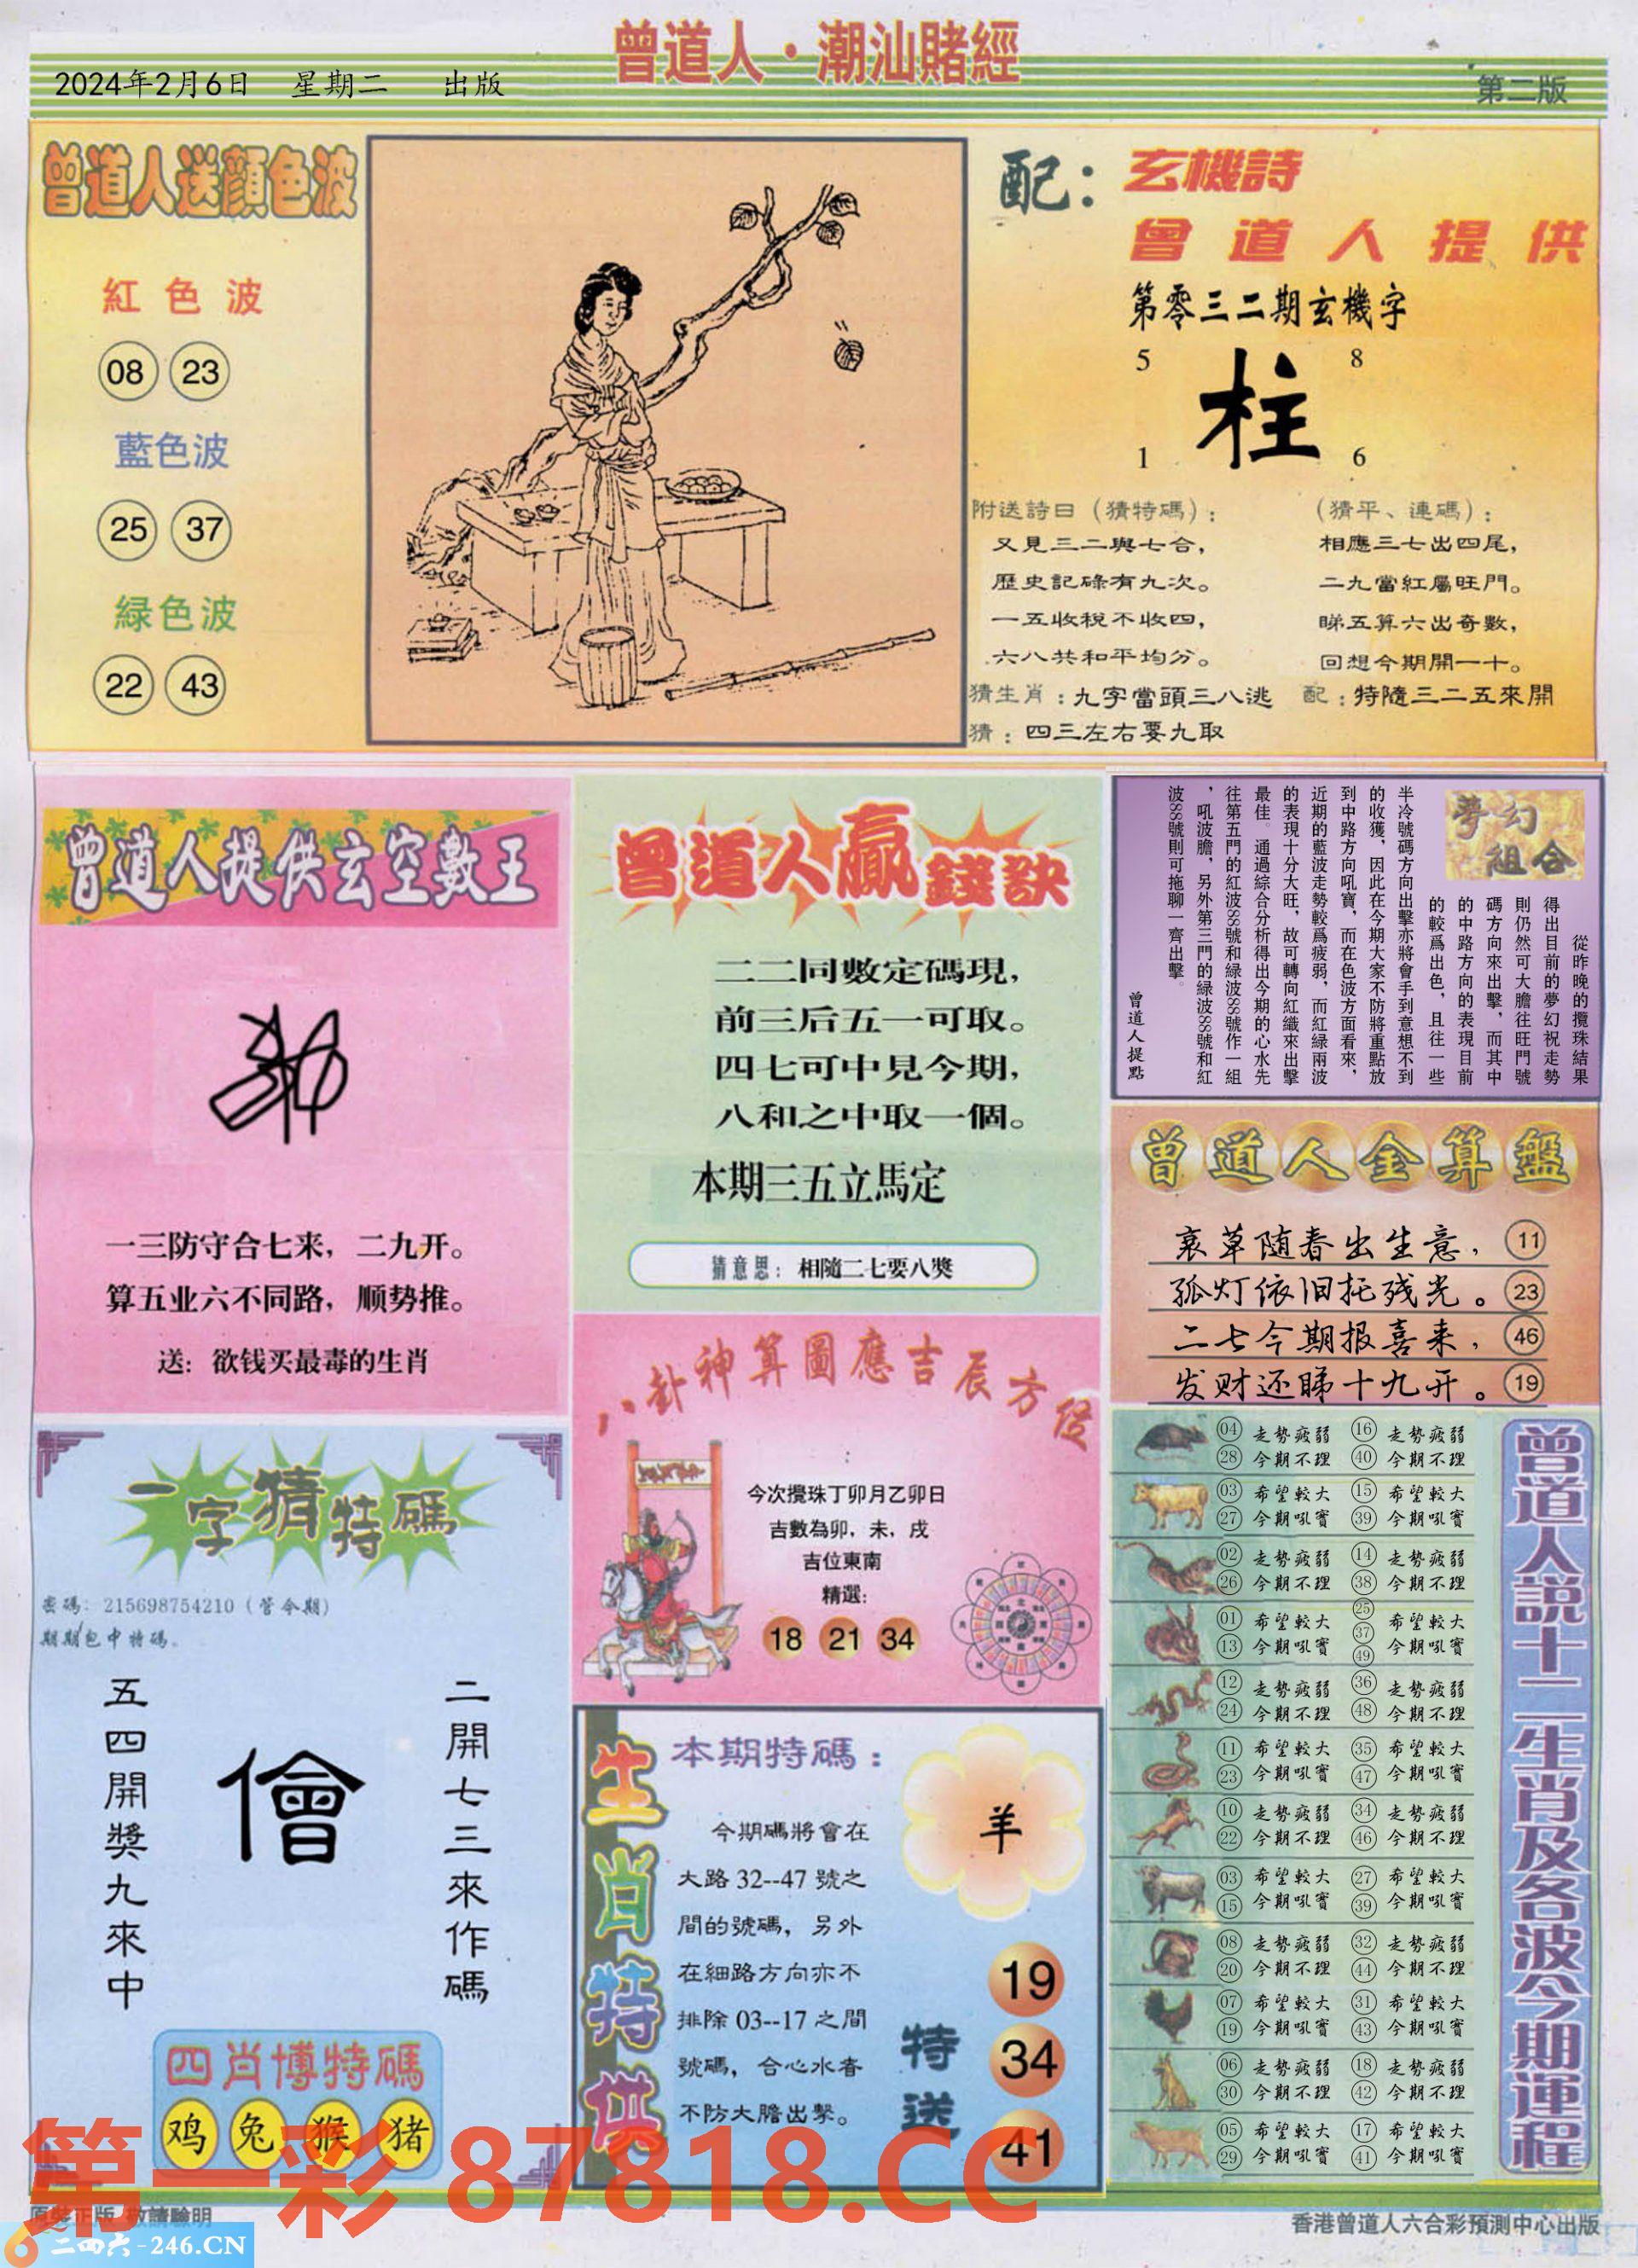 曾道人·潮汕賭經
2024年2月6日 星期二 出版
第二版
曾道人送顔色波
紅色波
08 23
藍色波
25 37
緑色波
22 43
配：玄機詩
曾道人提供
第零三二期玄機字
5 8
柱
1 6
附送詩曰（猜特碼）：
又見三二與七合，
歷史記碌有九次。
一五收稅不收四，
六八共和平均分。
（猜平、連碼）：
相應三七出四尾，
二九當紅屬旺門。
睇五算六出奇數，
回想今期開一十。
猜生肖：九字當頭三八逃
配：特隨三二五來開
猜：四三左右要九取
曾道人提供玄空數王
一三防守合七来，二九开。
算五业六不同路，顺势推。
送：欲钱买最毒的生肖
曾道人贏錢訣
二二同數定碼現，
前三后五一可取。
四七可中見今期，
八和之中取一個。
本期三五立馬定
猜意思：相隨二七要八獎
夢幻組合
從昨晚的攪珠結果
得出目前的夢幻祝走勢
則仍然可大膽往旺門號
碼方向來出擊，而其中
的中路方向的表現目前
的較爲出色，且往一些
半冷號碼方向出擊亦將會手到意想不到
的收獲，因此在今期大家不防將重點放
到中路方向吼寶，而在色波方面看來，
近期的藍波走勢較爲疲弱，而紅緑兩波
的表現十分大旺，故可轉向紅織來出擊
最佳。通過綜合分析得出今期的心水先
往第五門的紅波88號和緑波88號作一組
，吼波膽，另外第三門的緑波88號和紅
波88號則可拖聊一齊出擊。
曾道人提點
曾道人金算盤
哀草随春出生意， 11
孤灯依旧托残光。 23
二七今期报喜来， 46
发财还睇十九开。 19
八卦神算圖應吉辰方位
今次攪珠丁卯月乙卯日
吉數為卯，未，戌
吉位東南
精選：
18 21 34
一字猜特碼
密碼：215698754210（管今期）
期期包中特碼。
二開七三來作碼
儈
五四開獎九來中
四肖博特碼
鸡 兔 猴 猪
生肖特供
本期特碼：
今期碼將會在
大路32--47號之
間的號碼，另外
在細路方向亦不
排除03--17之間
號碼，合心水者
不防大膽出擊。
羊
特送
19
34
41
曾道人說十二生肖及各波今期運程
04 走勢疲弱 16 走勢疲弱
28 今期不理 40 今期不理
03 希望較大 15 希望較大
27 今期吼寶 39 今期吼寶
02 走勢疲弱 14 走勢疲弱
26 今期不理 38 今期不理
01 希望較大 25 37 49 希望較大
13 今期吼寶 今期吼寶
12 走勢疲弱 36 走勢疲弱
24 今期不理 48 今期不理
11 希望較大 35 希望較大
23 今期吼寶 47 今期吼寶
10 走勢疲弱 34 走勢疲弱
22 今期不理 46 今期不理
03 希望較大 27 希望較大
15 今期吼寶 39 今期吼寶
08 走勢疲弱 32 走勢疲弱
20 今期不理 44 今期不理
07 希望較大 31 希望較大
19 今期吼寶 43 今期吼寶
06 走勢疲弱 18 走勢疲弱
30 今期不理 42 今期不理
05 希望較大 17 希望較大
29 今期吼寶 41 今期吼寶
第一彩 87818.CC
原裝正版 敬請驗明
二四六-246.CN
香港曾道人六合彩預測中心出版